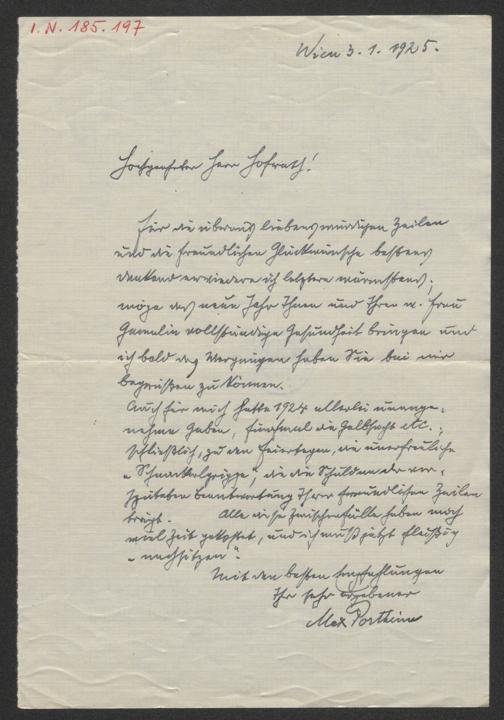 I. N. 185.197
Wien 3. 1. 1925.
Hochgeehrter Herr Hofrath!
Für die überaus liebenswürdigen Zeilen
und die freundlichen Glückwünsche bestens
dankend erwiedere ich letztere wärmstens;
möge das neue Jahr Ihnen und Ihrer w. Frau
Gemalin vollständige Gesundheit bringen und
ich bald das Vergnügen haben Sie bei mir
begrüßen zu können.
Auch für mich hatte 1924 allerlei unange-
nehme Gaben, die Gelbsucht etc.;
schließlich, zu den Feiertagen, die unerfreuliche
„Schnackerlgrippe", die die Schuld an der ver-
späteten Beantwortung Ihrer freundlichen Zeilen
trägt. Alle diese Zwischenfälle haben mich
viel Zeit gekostet, und ich muß jetzt fleißig
„nachsitzen".
Mit den besten Empfehlungen
Ihr sehr ergebener
Max Portheim